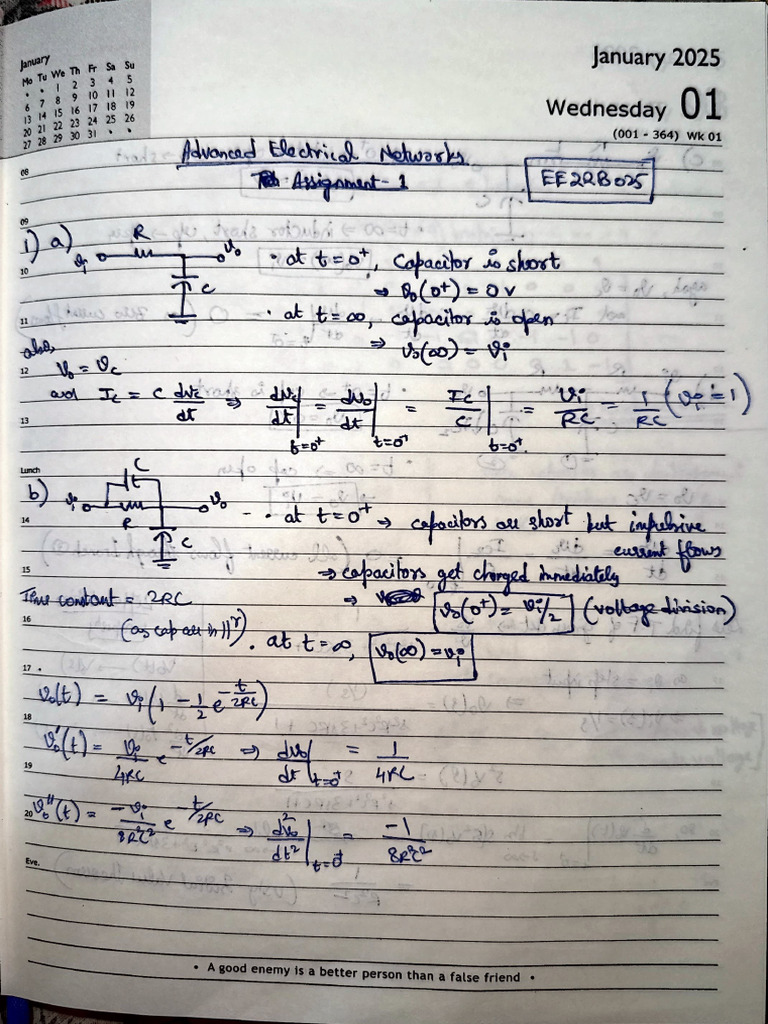 January
Mo Tu We Th Fr Sa Su
• • 1 2 3 4 5
6 7 8 9 10 11 12
13 14 15 16 17 18 19
20 21 22 23 24 25 26
27 28 29 30 31 • •
January 2025
Wednesday 01
(001 - 364) Wk 01
Advanced Electrical Networks
Assignment-1
EE22B025
08
09
1) a) R vi vo C
· at t=0⁺, Capacitor is short
10
⇒ vo(0⁺) = 0 v
11
· at t=∞, capacitor is open
⇒ vo(∞) = vi
also,
12
vo = vc
and Ic = C dvc/dt ⇒ dvc/dt |t=0⁺ = dvo/dt |t=0⁺ = Ic/C |t=0⁺ = vi/RC = 1/RC (vi = 1)
13
Lunch
b) C vi R vo C
14
· at t=0⁺ → capacitors are short but impulsive
current flows
15
⇒ capacitors get charged immediately
Time constant = 2RC
⇒ vo(0⁺) = vi/2 (voltage division)
16
(as caps are in ||ʳ)
· at t=∞, vo(∞) = vi
17
vo(t) = vi (1 - 1/2 e^(-t/2RC))
18
vo'(t) = vi/4RC e^(-t/2RC) ⇒ dvo/dt |t=0⁺ = 1/4RC
19
20
vo''(t) = -vi/8R²C² e^(-t/2RC) ⇒ d²vo/dt² |t=0⁺ = -1/8R²C²
Eve.
• A good enemy is a better person than a false friend •